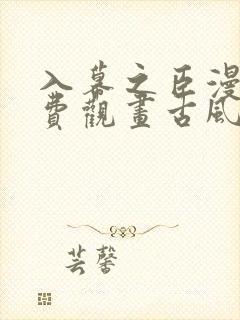 入幕之臣漫
費觀畫古風
芸馨